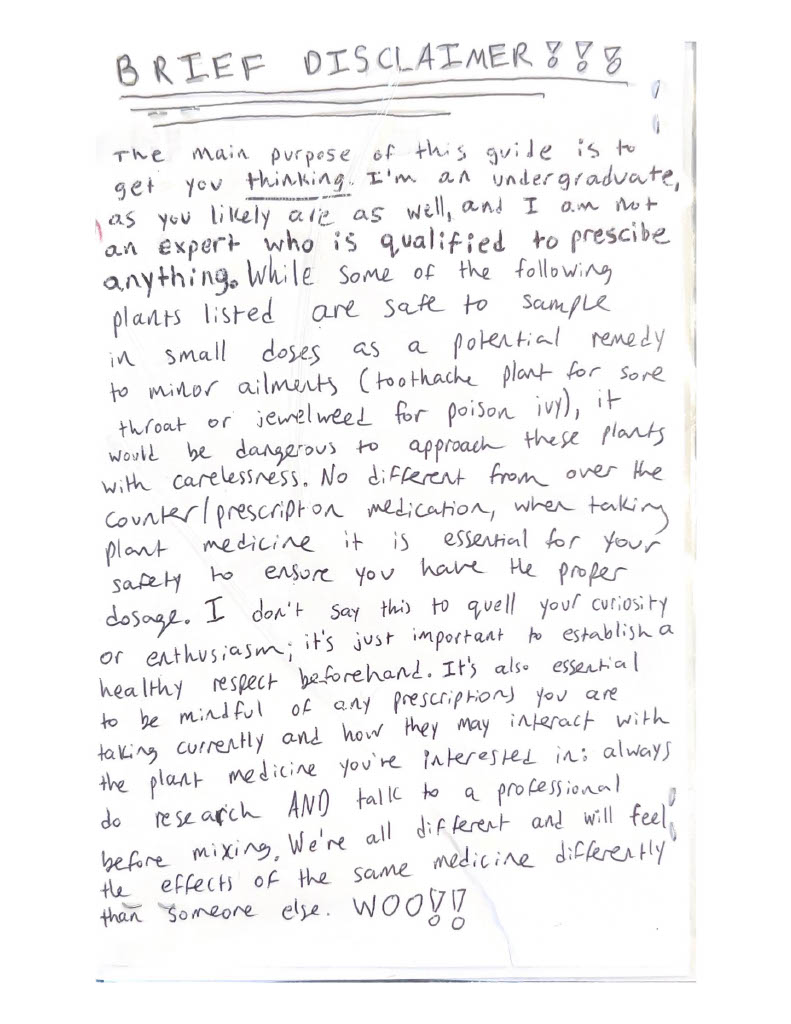 BRIEF DISCLAIMER!!!
The main purpose of this guide is to
get you thinking. I'm an undergraduate,
as you likely are as well, and I am not
an expert who is qualified to prescibe
anything. While some of the following
plants listed are safe to sample
in small doses as a potential remedy
to minor ailments (toothache plant for sore
throat or jewelweed for poison ivy), it
would be dangerous to approach these plants
with carelessness. No different from over the
counter/prescription medication, when taking
plant medicine it is essential for your
safety to ensure you have the proper
dosage. I don't say this to quell your curiosity
or enthusiasm; it's just important to establish a
healthy respect beforehand. It's also essential
to be mindful of any prescriptions you are
taking currently and how they may interact with
the plant medicine you're interested in: always
do research AND talk to a professional
before mixing. We're all different and will feel
the effects of the same medicine differently
than someone else. WOO!!